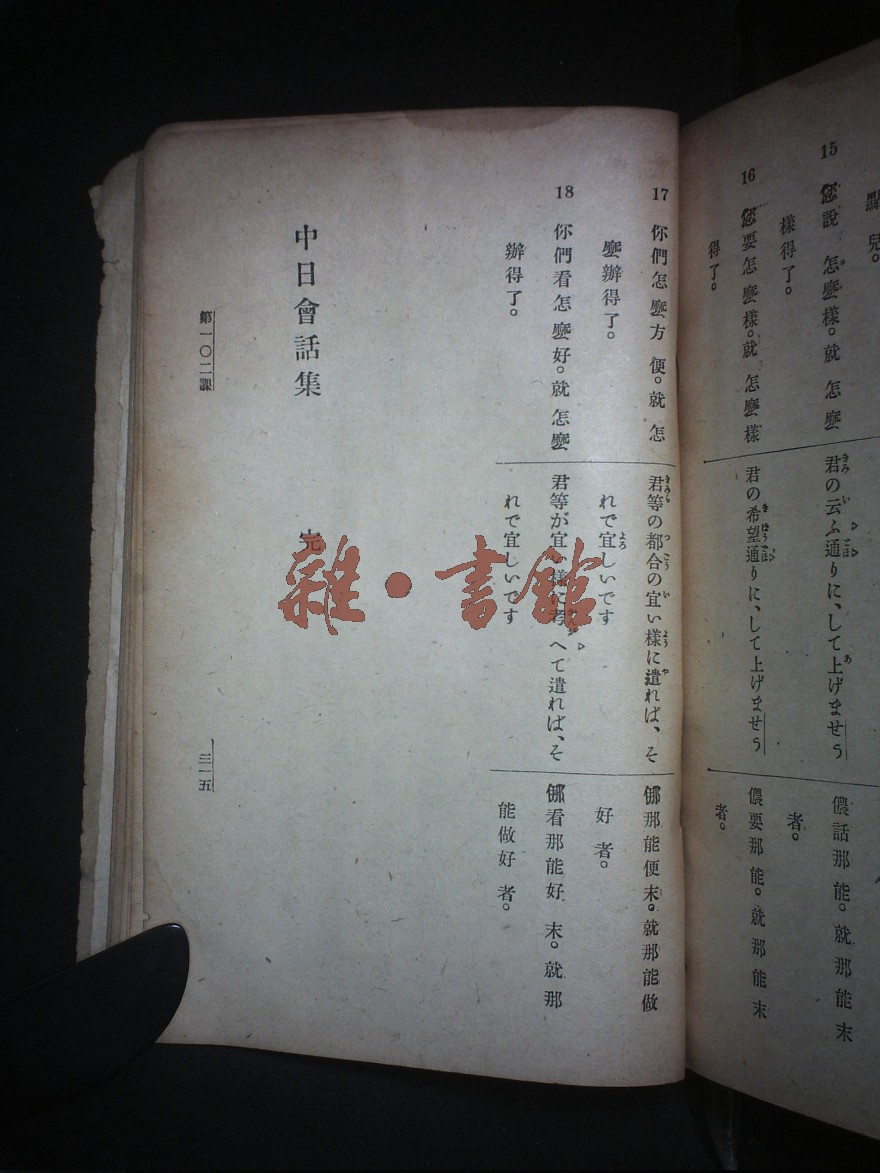 點兒。
15 您說怎麼樣。就怎麼
樣得了。
16 您要怎麼樣。就怎麼樣
得了。
君の云ふ通りに、して上げませう
君の希望通りに、して上げませう
儂話那能。就那能末
者。
儂要那能。就那能末
者。
17 你們怎麼方便。就怎
麼辦得了。
18 你們看怎麼好。就怎麼
辦得了。
君等の都合の宜い様に遣れば、そ
れで宜しいです
君等が宜い様に考へて遣れば、そ
れで宜しいです
㑚那能便末。就那能做
好者。
㑚看那能好末。就那
能做好者。
中日會話集 完
第一〇二課
三一五
雜·書館